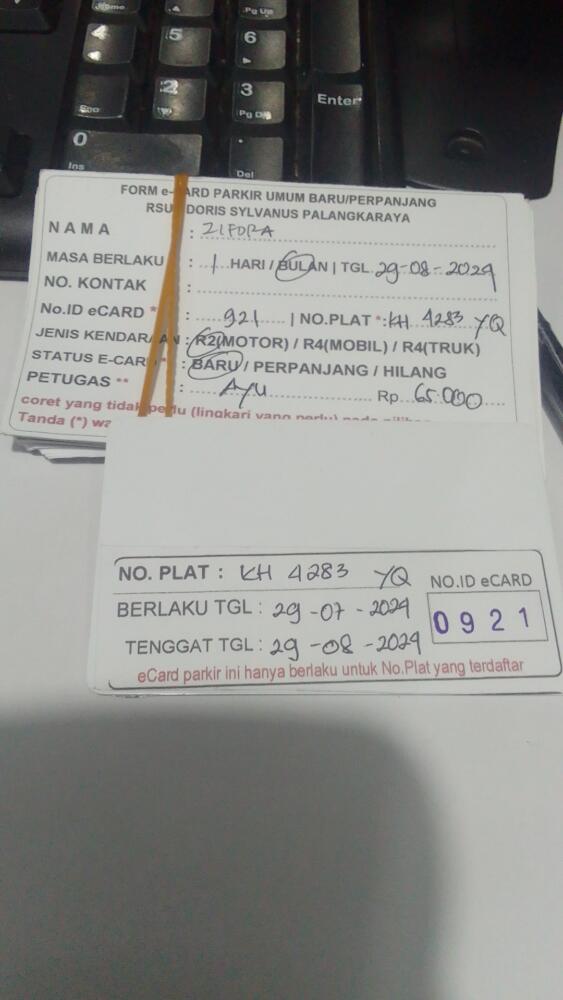 Home
Pg Up
4
5
6
End
2
3
Pg Dn
Enter
0
Ins
.
Del
FORM e-CARD PARKIR UMUM BARU/PERPANJANG
RSU DORIS SYLVANUS PALANGKARAYA
NAMA : ZIFORA
MASA BERLAKU : 1 HARI / BULAN | TGL. 29-08-2029
NO. KONTAK :
No.ID eCARD * : 921 | NO.PLAT *: KH 4283 YQ
JENIS KENDARAAN : R2(MOTOR) / R4(MOBIL) / R4(TRUK)
STATUS E-CARD * : BARU / PERPANJANG / HILANG
PETUGAS ** : AYU Rp. 65.000
coret yang tidak perlu (lingkari yang perlu) pada
Tanda (*) wa
NO. PLAT : KH 4283 YQ
NO.ID eCARD
BERLAKU TGL : 29-07-2029
0921
TENGGAT TGL : 29-08-2029
eCard parkir ini hanya berlaku untuk No.Plat yang terdaftar